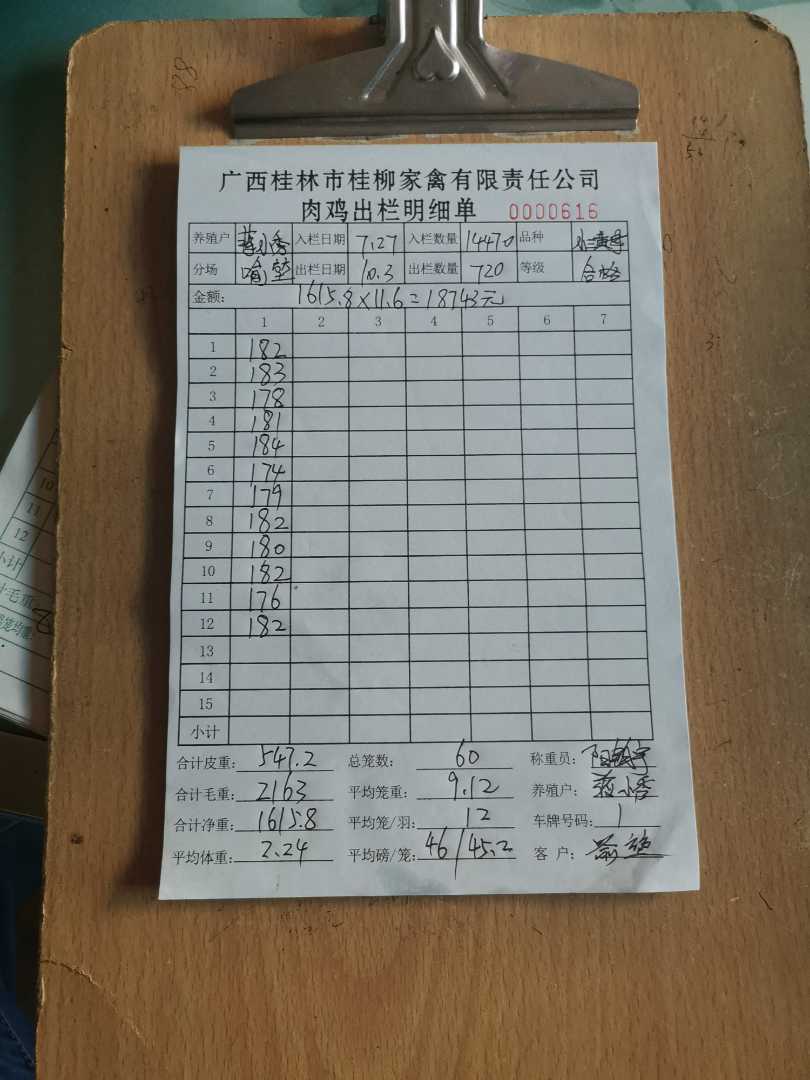 广西桂林市桂柳家禽有限责任公司
肉鸡出栏明细单 0000616
养殖户 蒋小秀 入栏日期 7.27 入栏数量 14470 品种
分场 出栏日期 10.3 出栏数量 720 等级 合格
金额: 1615.8×11.6=18743元
1 2 3 4 5 6 7
1 182
2 183
3 178
4 181
5 184
6 174
7 179
8 182
9 180
10 182
11 176
12 182
13
14
15
小计
合计皮重: 547.2 总笼数: 60 称重员:
合计毛重: 2163 平均笼重: 9.12 养殖户: 蒋小秀
合计净重: 1615.8 平均笼/羽: 12 车牌号码: 1
平均体重: 2.24 平均磅/笼: 46/45.2 客户:
10
11
12
小计